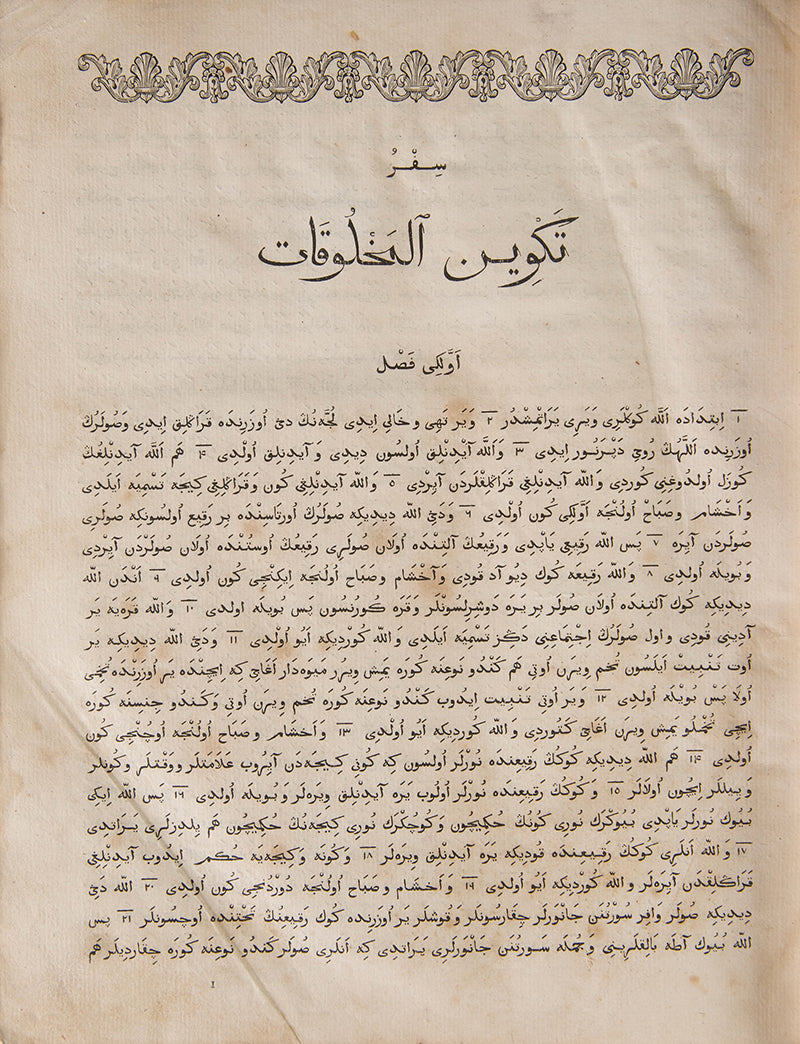 سِفْرُ
تَكْوِينِ ٱلْمَخْلُوقَات
أَوَّلكِي فَصْل
١ اِبْتِدَادَه اَللّٰه كُوكْلَرِي وَيَرِي يَرَاتْمِشْدُر ٢ وَيَر تَهِي وخَالِي اِيدِي لُجَّه‌نُكْ دَخِي اُوزَرِنْدَه قَرَاكْلِق اِيدِي وَصُولَرُكْ
اُوزَرِنْدَه اَللّٰهُكْ رُوحِي دَپْرَنُور اِيدِي ٣ وَاَللّٰه آيْدِنْلِق اُولْسُون دِيدِي وَآيْدِنْلِق اُولْدِي ۴ هَم اَللّٰه آيْدِنْلِغُكْ
كُوزَل اُولْدُوغِنِي كُورْدِي وَاَللّٰه آيْدِنْلِغِي قَرَاكْلِغْلَرْدَن آيِرْدِي ٥ وَاَللّٰه آيْدِنْلِغِي كُون وَقَرَاكْلِغِي كِيجَه تَسْمِيَه اَيْلَدِي
وَاَخْشَام وصَبَاح اُولُنْجَه أَوَّلكِي كُون اُولْدِي ٦ وَدَخِي اَللّٰه دِيدِيكِه صُولَرُكْ اُورْتَاسِنْدَه بِر رَقِيع اُولْسُونكِه صُولَرِي
صُولَرْدَن آيِرَه ٧ پَس اَللّٰه رَقِيعِي يَاپْدِي وَرَقِيعُكْ آلْتِنْدَه اُولَان صُولَرِي رَقِيعُكْ اُوسْتُنْدَه اُولَان صُولَرْدَن آيِرْدِي
وَبُويْلَه اُولْدِي ٨ وَاَللّٰه رَقِيعَه كُوك دِيُو آد قُودِي وَآخْشَام وصَبَاح اُولُنْجَه اِيكِنْجِي كُون اُولْدِي ٩ اَنْدَن اَللّٰه
دِيدِيكِه كُوك آلْتِنْدَه اُولَان صُولَر بِر يَرَه دَوْشِرِلْسُونْلَر وَقَرَه كُورُنْسُون پَس بُويْلَه اولدى ١٠ وَاَللّٰه قَرَه‌يَه يَر
آدِينِي قُودِي واول صُولَرُكْ اِجْتِمَاعِنِي دَكِز تَسْمِيَه اَيْلَدِي وَاَللّٰه كُورْدِيكِه اَيُو اُولْدِي ١١ وَدَخِي اَللّٰه دِيدِيكِه يَر
اُوت تَنْبِيت اَيْلَسُون تُخم وِيرَن اُوتِي هَم كَنْدُو نَوعِنَه كُورَه يَمِش وِيرَر مَيوَه‌دَار آغَاجِي كِه اِيچِنْدَه يَر اُوزَرِنْدَه تُخْمِي
اُولَا پَس بُويْلَه اُولْدِي ١٢ وَيَر اُوتِي تَنْبِيت اِيدُوب كَنْدُو نَوعِنَه كُورَه تُخم وِيرَن اُوتِي وَكَنْدُو جِنْسِنَه كُورَه
اِيچِي تُخْمْلُو يَمِش وِيرَن آغَاجِي كَتُورْدِي وَاَللّٰه كُورْدِيكِه اَيُو اُولْدِي ١٣ وَاَخْشَام وصَبَاح اُولُنْجَه اُوچُنْجِي كُون
اُولْدِي ١۴ هَم اَللّٰه دِيدِيكِه كُوكُكْ رَقِيعِنْدَه نُورْلَر اُولْسُون كِه كُونِي كِيجَه‌دَن آيِرُوب عَلَامَتْلَر ووَقْتْلَر وكُونْلَر
وَيِيلْلَر اِيچُون اُولَالَر ١٥ وَكُوكُكْ رَقِيعِنْدَه نُورْلَر اُولُوب يَرَه آيْدِنْلِق وِيرَه‌لَر وَبُويْلَه اُولْدِي ١٦ پَس اَللّٰه اِيكِي
بُيُوك نُورْلَر يَاپْدِي بُيُوكْرَك نُورِي كُونُكْ حُكمِيچُون وَكُوچُكْرَك نُورِي كِيجَه‌نُكْ حُكمِيچُون هَم يِلْدِزْلَرِي يَرَاتْدِي
١٧ وَاَللّٰه اَنْلَرِي كُوكُكْ رَقِيعِنْدَه قُودِيكِه يَرَه آيْدِنْلِق وِيرَه‌لَر ١٨ وَكُونَه وكِيجَه‌يَه حُكم اِيدُوب آيْدِنْلِغِي
قَرَاكْلِغْدَن آيِرَه‌لَر وَاَللّٰه كُورْدِيكِه اَيُو اُولْدِي ١٩ وَاَخْشَام وصَبَاح اُولُنْجَه دُورْدُنْجِي كُون اُولْدِي ٢٠ اَللّٰه دَخِي
دِيدِيكِه صُولَر وَافِر سُورْنَن جَانْوَرْلَر چِقَارسُونْلَر وَقُوشْلَر يَر اُوزَرِنْدَه كُوك رَقِيعِنُكْ تَحْتِنْدَه اُوچْسُونْلَر ٢١ پَس
اَللّٰه بُيُوك آطَه بَالِغْلَرِينِي وَجُمْلَه سُورُنَن جَانْوَرْلَرِي يَرَاتْدِي كِه اَنْلَرِي صُولَر كَنْدُو نَوعِنَه كُورَه چِقَارْدِيلَر هَم
1